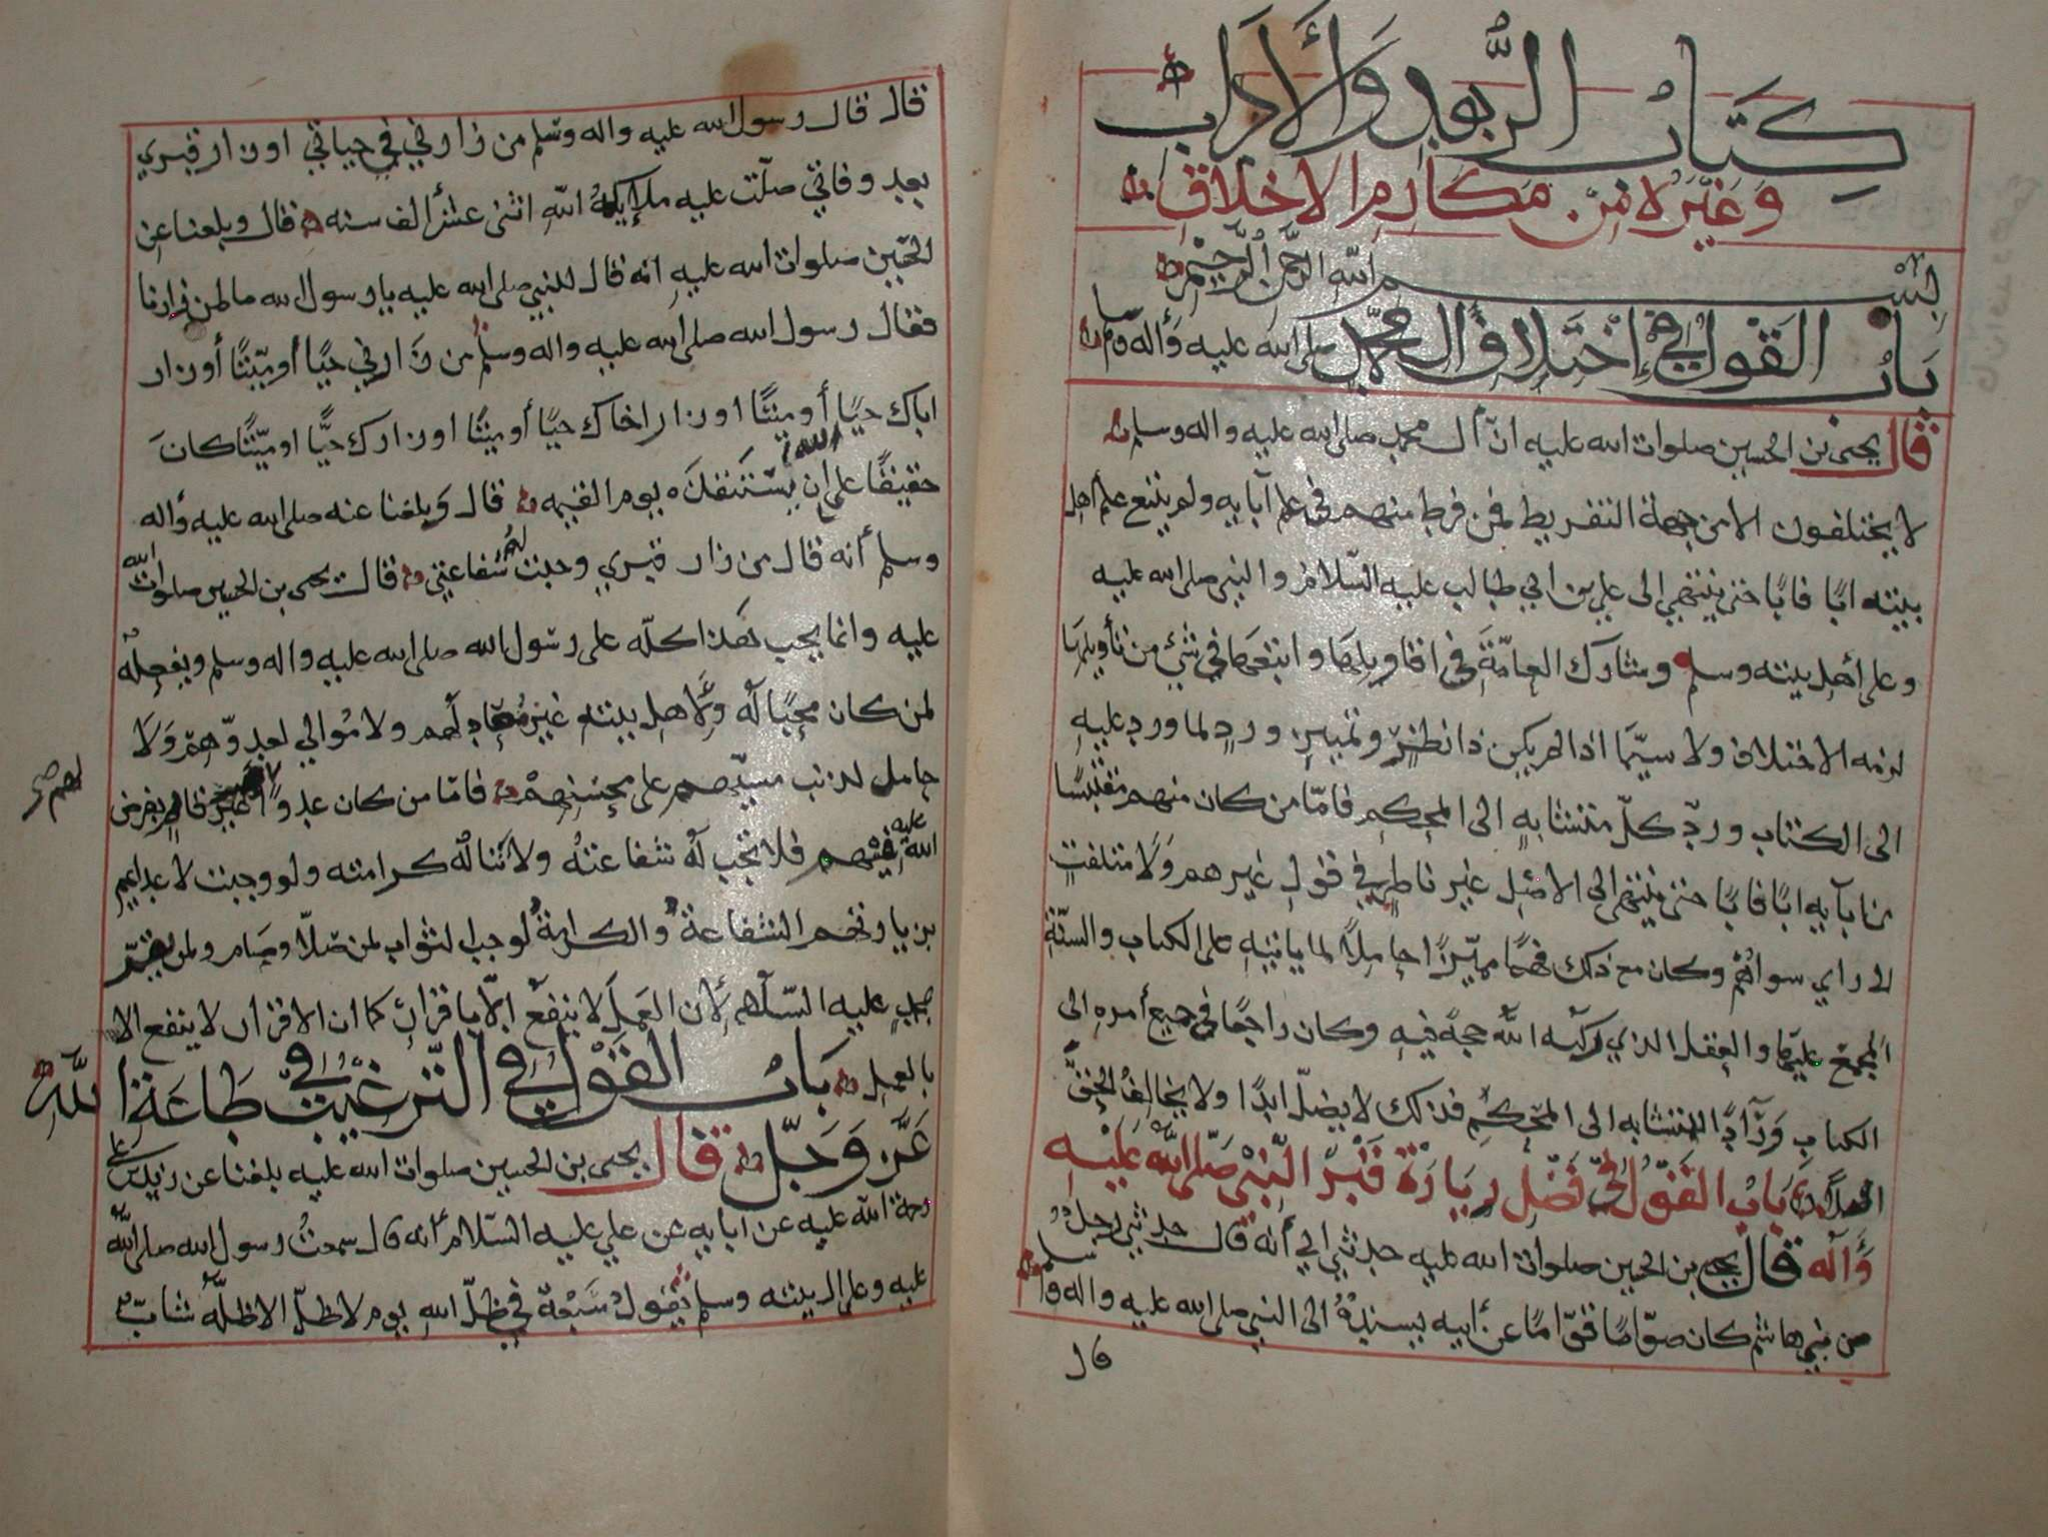 كتاب الزهد والأداب
وغيره من مكارم الاخلاق
بسم الله الرحمن الرحيم
باب القول في إختلاف أل محمد صلى الله عليه وأله وسلم
قال يحيى بن الحسين صلوات الله عليه انّ أل محمد صلى الله عليه واله وسلم
لا يختلفون الا من جهة التفريط فمن فرط منهم في علم آبايه ولم يتبع علم اهل
بيته ابًا فابًا حتى ينتهي الى علي بن ابي طالب عليه السّلام والنبي صلى الله عليه
وعلى أهل بيته وسلم وشارك العامّة في اقاويلها واتبعها في شيء من تأويلها
لزمه الاختلاف ولا سيّما اذا لم يكن ذا نظرٍ وتمييز وردٍ لما ورد عليه
الى الكتاب وردّ كلّ متشابهٍ الى المحكم فامّا من كان منهم مقتبسًا
من آبايه ابًا فابًا حتى ينتهي الى الاصل غير ناظرٍ في قول غيرهم ولا متلفتٍ
الى راي سواهُم وكان مع ذلك فهمًا مميّزًا حاملاً لما ياتيه على الكتاب والسنّة
المجمع عليها والعقل الذي ركّبه اللّه حجة فيه وكان راجعًا في جميع أمره الى
الكتاب وردّ المتشابه الى المحكم فذلك لا يضلّ ابدًا ولا يخالف الحقّ
اصلاً باب القول في فضل زيارة قبر النّبي صلّى الله عليه
وَآله قال يحيى بن الحسين صلوات الله عليه حدثني ابي أنه قال حدثني رجلٌ
من بني هاشم كان صوّامًا قوّامًا عن أبيه يسنده الى النبي صلى الله عليه واله وسلم
قال
قال قال رسول الله عليه واله وسلم من زارني في حياتي او زار قبري
بعد وفاتي صلّت عليه ملايكة اللّه اثني عشر ألف سنه قال وبلغنا عن
الحسين صلوات الله عليه انه قال للنبي صلى الله عليه يا رسول الله ما لمن زارنا
فقال رسول الله صلى الله عليه واله وسلم من زارني حيًا أو ميّتًا أو زار
اباك حيًا أو ميتًا او زار اخاك حيًا أو ميتًا او زارك حيًّا او ميّتًا كانَ
حقيقًا على الله ان يستنقذه يوم القيمه قال وبلغنا عنه صلى الله عليه وأله
وسلم أنه قال من زار قبري وجبت له شفاعتي قال يحيى بن الحسين صلوات الله
عليه وانما يجب هذا كلّه على رسول الله صلى الله عليه واله وسلم ويفعله
لمن كان محبًا له ولاهل بيته غير معاد لهم ولا مُوالي لعدوّهم ولا
حامل لذنب مسيّهم على محسنهم فامّا من كان عدوًا فلم يفرض
لهم صح
الله عليه فيهم فلا تجب لهُ شفاعتهُ ولا تناله كرامته ولو وجبت لاعدايهم
بزيارتهم الشفاعة والكرامة لوجب الثواب لمن صلّا وصام ولم يقرّ
عليه السّلام لأن العمل لا ينفع إلّا باقرار كما ان الاقرار لا ينفع الا
بالعمل باب القول في التّرغيب في طاعة اللّه
عزَّ وَجَلّ قال يحيى بن الحسين صلوات الله عليه بلغنا عن زيد بن علي
رحمة الله عليه عن ابايه عن علي عليه السّلام أنه قال سمعتُ رسول الله صلى اللّه
عليه وعلى ال بيته وسلم يقول سَبعة في ظلّ الله يوم لا ظلّ الا ظلّه شابّ